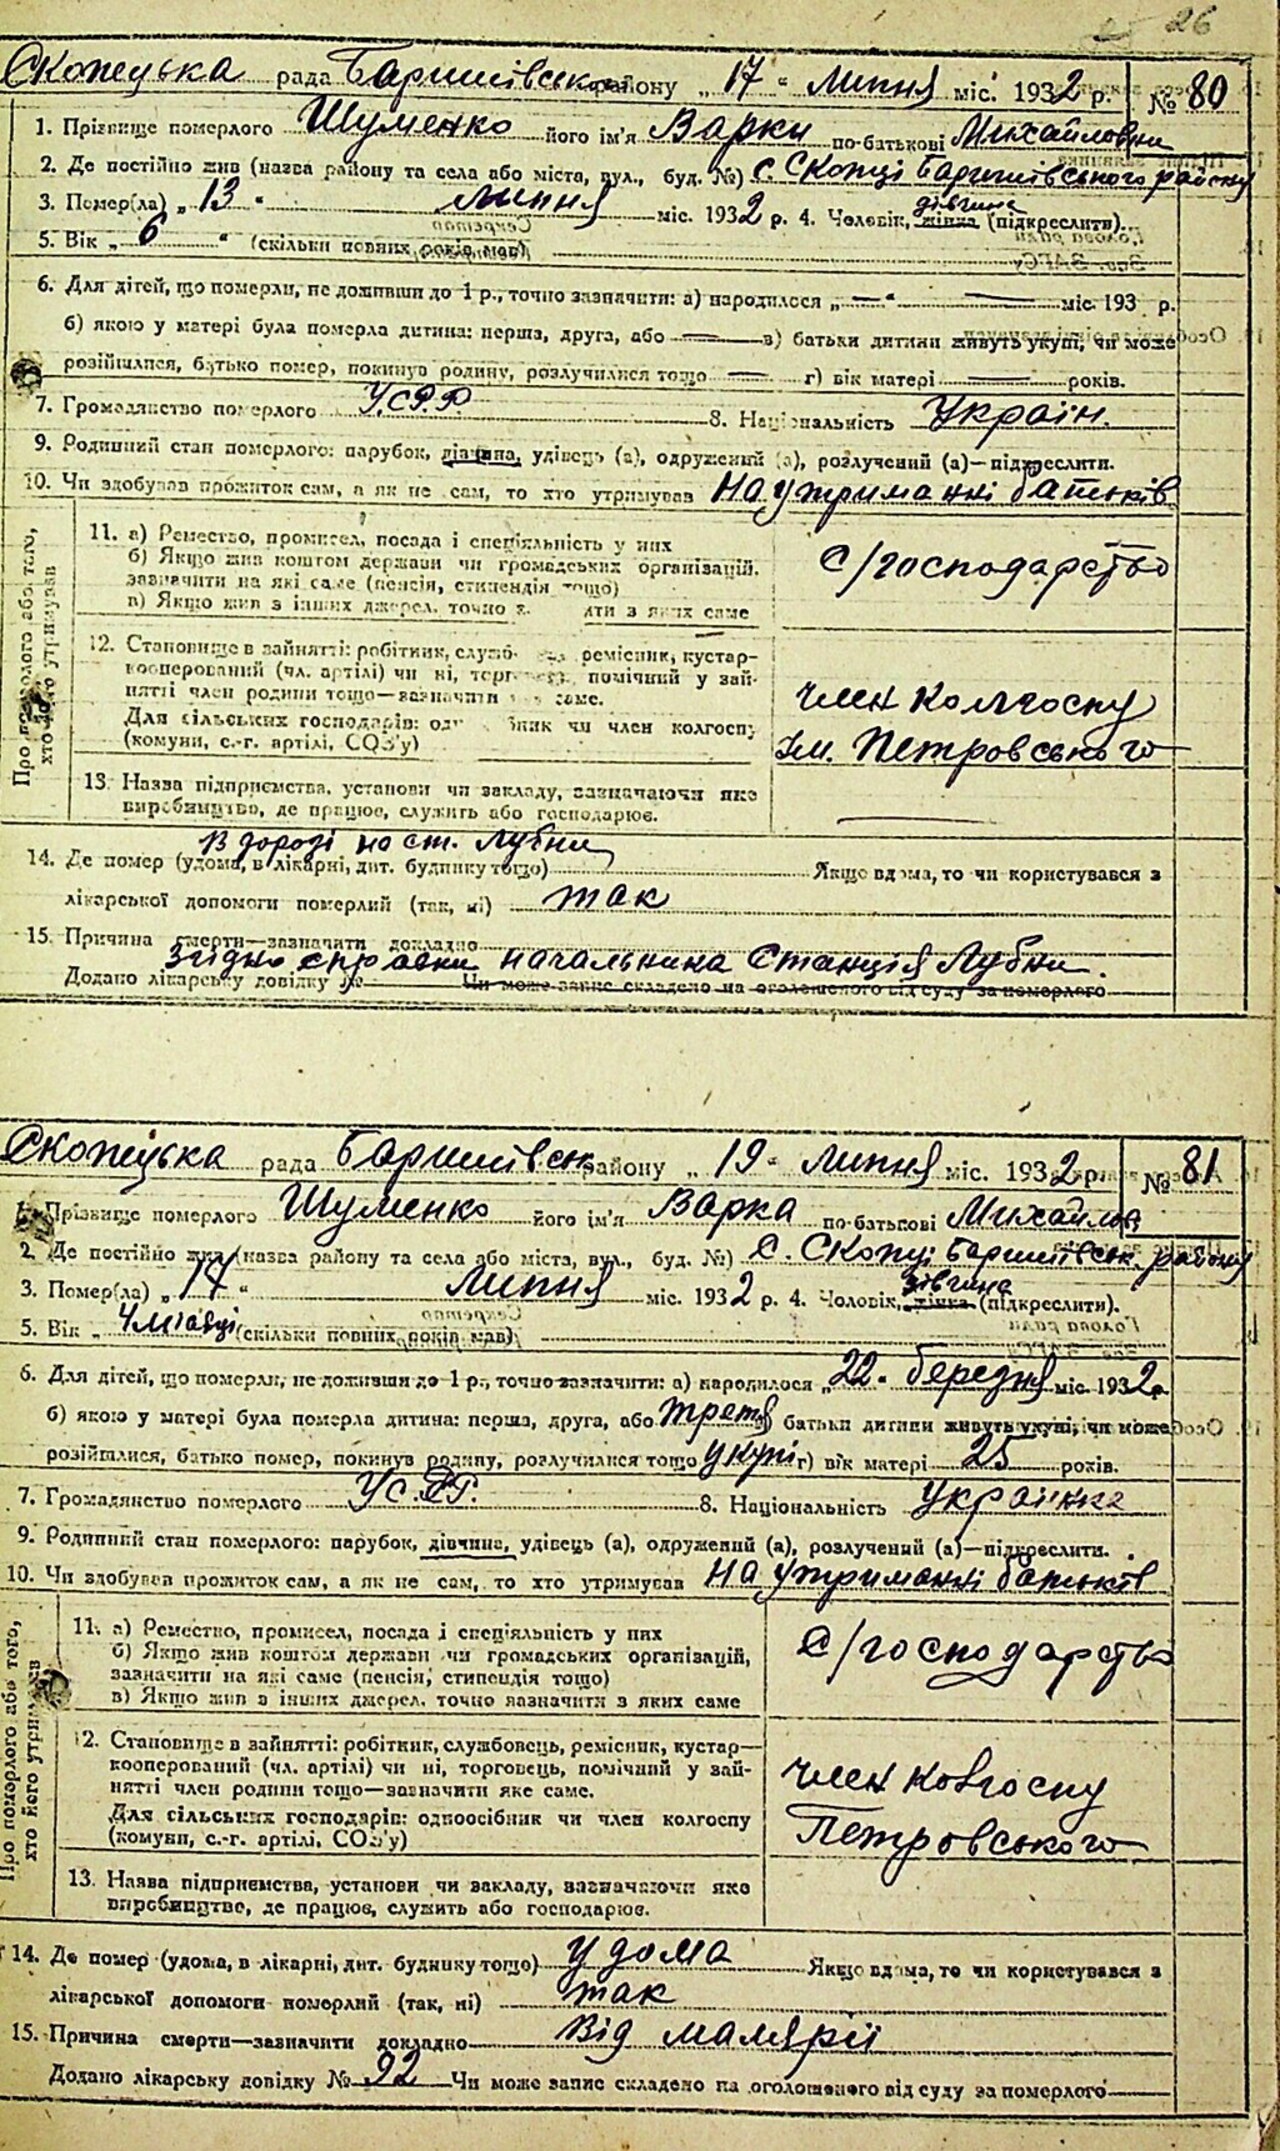 26
Скопецька рада Баришівськ району „17" липня міс. 1932 р. № 80
1. Прізвище померлого Шуменко його ім'я Варки по-батькові Михайловни
2. Де постійно жив (назва району та села або міста, вул., буд. №) с. Скопці Баришівського району
дівчина
3. Помер(ла) „13" липня міс. 1932 р. 4. Чоловік, жінка (підкреслити).
5. Вік „6" (скільки повних років мав)
6. Для дітей, що померли, не доживши до 1 р., точно зазначити: а) народилося „—" — міс. 193 р.
б) якою у матері була померла дитина: перша, друга, або — в) батьки дитини живуть укупі, чи може
розійшлися, батько помер, покинув родину, розлучилися тощо — г) вік матері — років.
7. Громадянство померлого У.С.Р.Р. 8. Національність Україін.
9. Родинний стан померлого: парубок, дівчина, удівець (а), одружений (а), розлучений (а)—підкреслити.
10. Чи здобував прожиток сам, а як не сам, то хто утримував На утриманні батьків
Про померлого або того, хто його утримував
11. а) Ремество, промисел, посада і спеціяльність у них
б) Якщо жив коштом держави чи громадських організацій,
зазначити на які саме (пенсія, стипендія тощо)
в) Якщо жив з інших джерел, точно з яких саме
С/господарство
12. Становище в зайнятті: робітник, служб ремісник, кустар—
кооперований (чл. артілі) чи ні, торг помічний у зай-
нятті член родини тощо—зазначити саме.
Для сільських господарів: од чи член колгоспу
(комуни, с.-г. артілі, СОЗ'у)
член колгоспу
Ім. Петровського
13. Назва підприємства, установи чи закладу, зазначаючи яке
виробництво, де працює, служить або господарює.
В дорозі на ст. Лубни
14. Де помер (удома, в лікарні, дит. будинку тощо) Якщо вдома, то чи користувався з
лікарської допомоги померлий (так, ні) так
15. Причина смерти—зазначити докладно
Згідно справки начальника Станція Лубни.
Додано лікарську довідку № Чи може запис складено на оголошеного від суду за померлого
Скопецька рада Баришівськ району „19" липня міс. 1932 р. № 81
1. Прізвище померлого Шуменко його ім'я Варка по-батькові Михайлов
2. Де постійно жив (назва району та села або міста, вул., буд. №) С. Скопці Баришівськ. району
дівчина
3. Помер(ла) „17" липня міс. 1932 р. 4. Чоловік, жінка (підкреслити).
5. Вік „4 місяці (скільки повних років мав)
6. Для дітей, що померли, не доживши до 1 р., точно зазначити: а) народилося „22" березня міс. 1932 р.
б) якою у матері була померла дитина: перша, друга, або третя в) батьки дитини живуть укупі, чи може
розійшлися, батько помер, покинув родину, розлучилися тощо укупі г) вік матері 25 років.
7. Громадянство померлого 8. Національність українка
9. Родинний стан померлого: парубок, дівчина, удівець (а), одружений (а), розлучений (а)—підкреслити.
10. Чи здобував прожиток сам, а як не сам, то хто утримував На утриманні батьків
Про померлого або того, хто його утримував
11. а) Ремество, промисел, посада і спеціяльність у них
б) Якщо жив коштом держави чи громадських організацій,
зазначити на які саме (пенсія, стипендія тощо)
в) Якщо жив з інших джерел, точно зазначити з яких саме
С/господарство
12. Становище в зайнятті: робітник, службовець, ремісник, кустар—
кооперований (чл. артілі) чи ні, торговець, помічний у зай-
нятті член родини тощо—зазначити яке саме.
Для сільських господарів: одноосібник чи член колгоспу
(комуни, с.-г. артілі, СОЗ'у)
член ковгоспу
Петровського
13. Назва підприємства, установи чи закладу, зазначаючи яке
виробництво, де працює, служить або господарює.
14. Де помер (удома, в лікарні, дит. будинку тощо) у дома Якщо вдома, то чи користувався з
лікарської допомоги померлий (так, ні) так
15. Причина смерти—зазначити докладно Від малярії
Додано лікарську довідку № 92 Чи може запис складено на оголошеного від суду за померлого